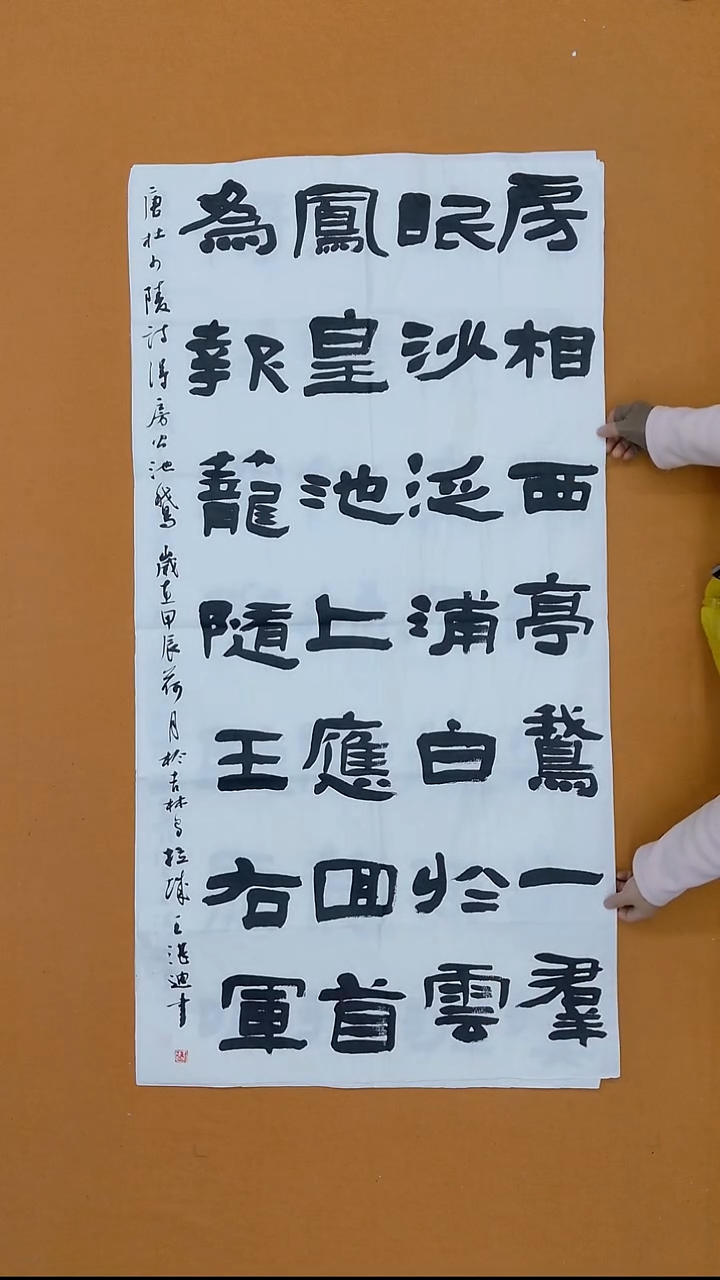 房相西亭鵞一羣
眠沙泛浦白於雲
鳳皇池上應回首
為報籠隨王右軍
唐杜少陵詩得房公池鵞 歲在甲辰荷月於吉林烏拉城王迪書